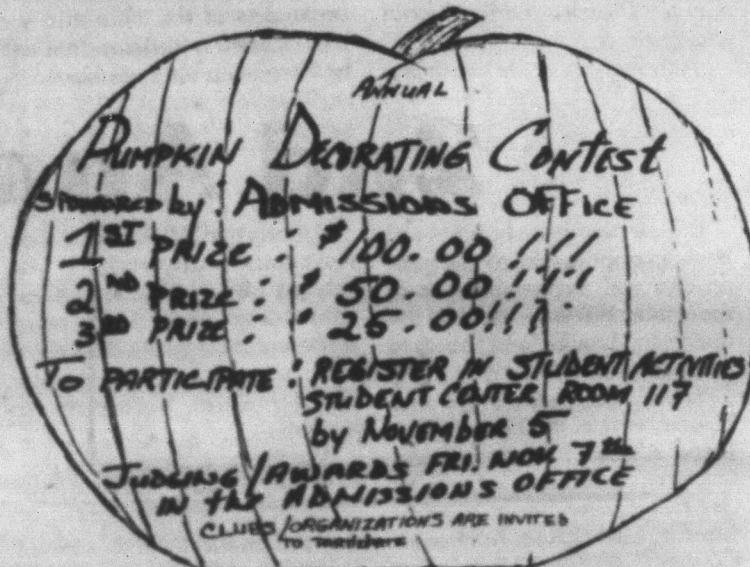 ANNUAL
PUMPKIN DECORATING CONTEST
SPONSORED by: ADMISSIONS OFFICE
1ST PRIZE: $100.00 !!!
2ND PRIZE: $ 50.00 !!!!
3RD PRIZE: $ 25.00!!!
TO PARTICIPATE: REGISTER IN STUDENT ACTIVITIES
STUDENT CENTER ROOM 117
by NOVEMBER 5
JUDGING/AWARDS FRI. NOV. 7TH
IN the ADMISSIONS OFFICE
CLUBS/ORGANIZATIONS ARE INVITED
TO PARTICIPATE